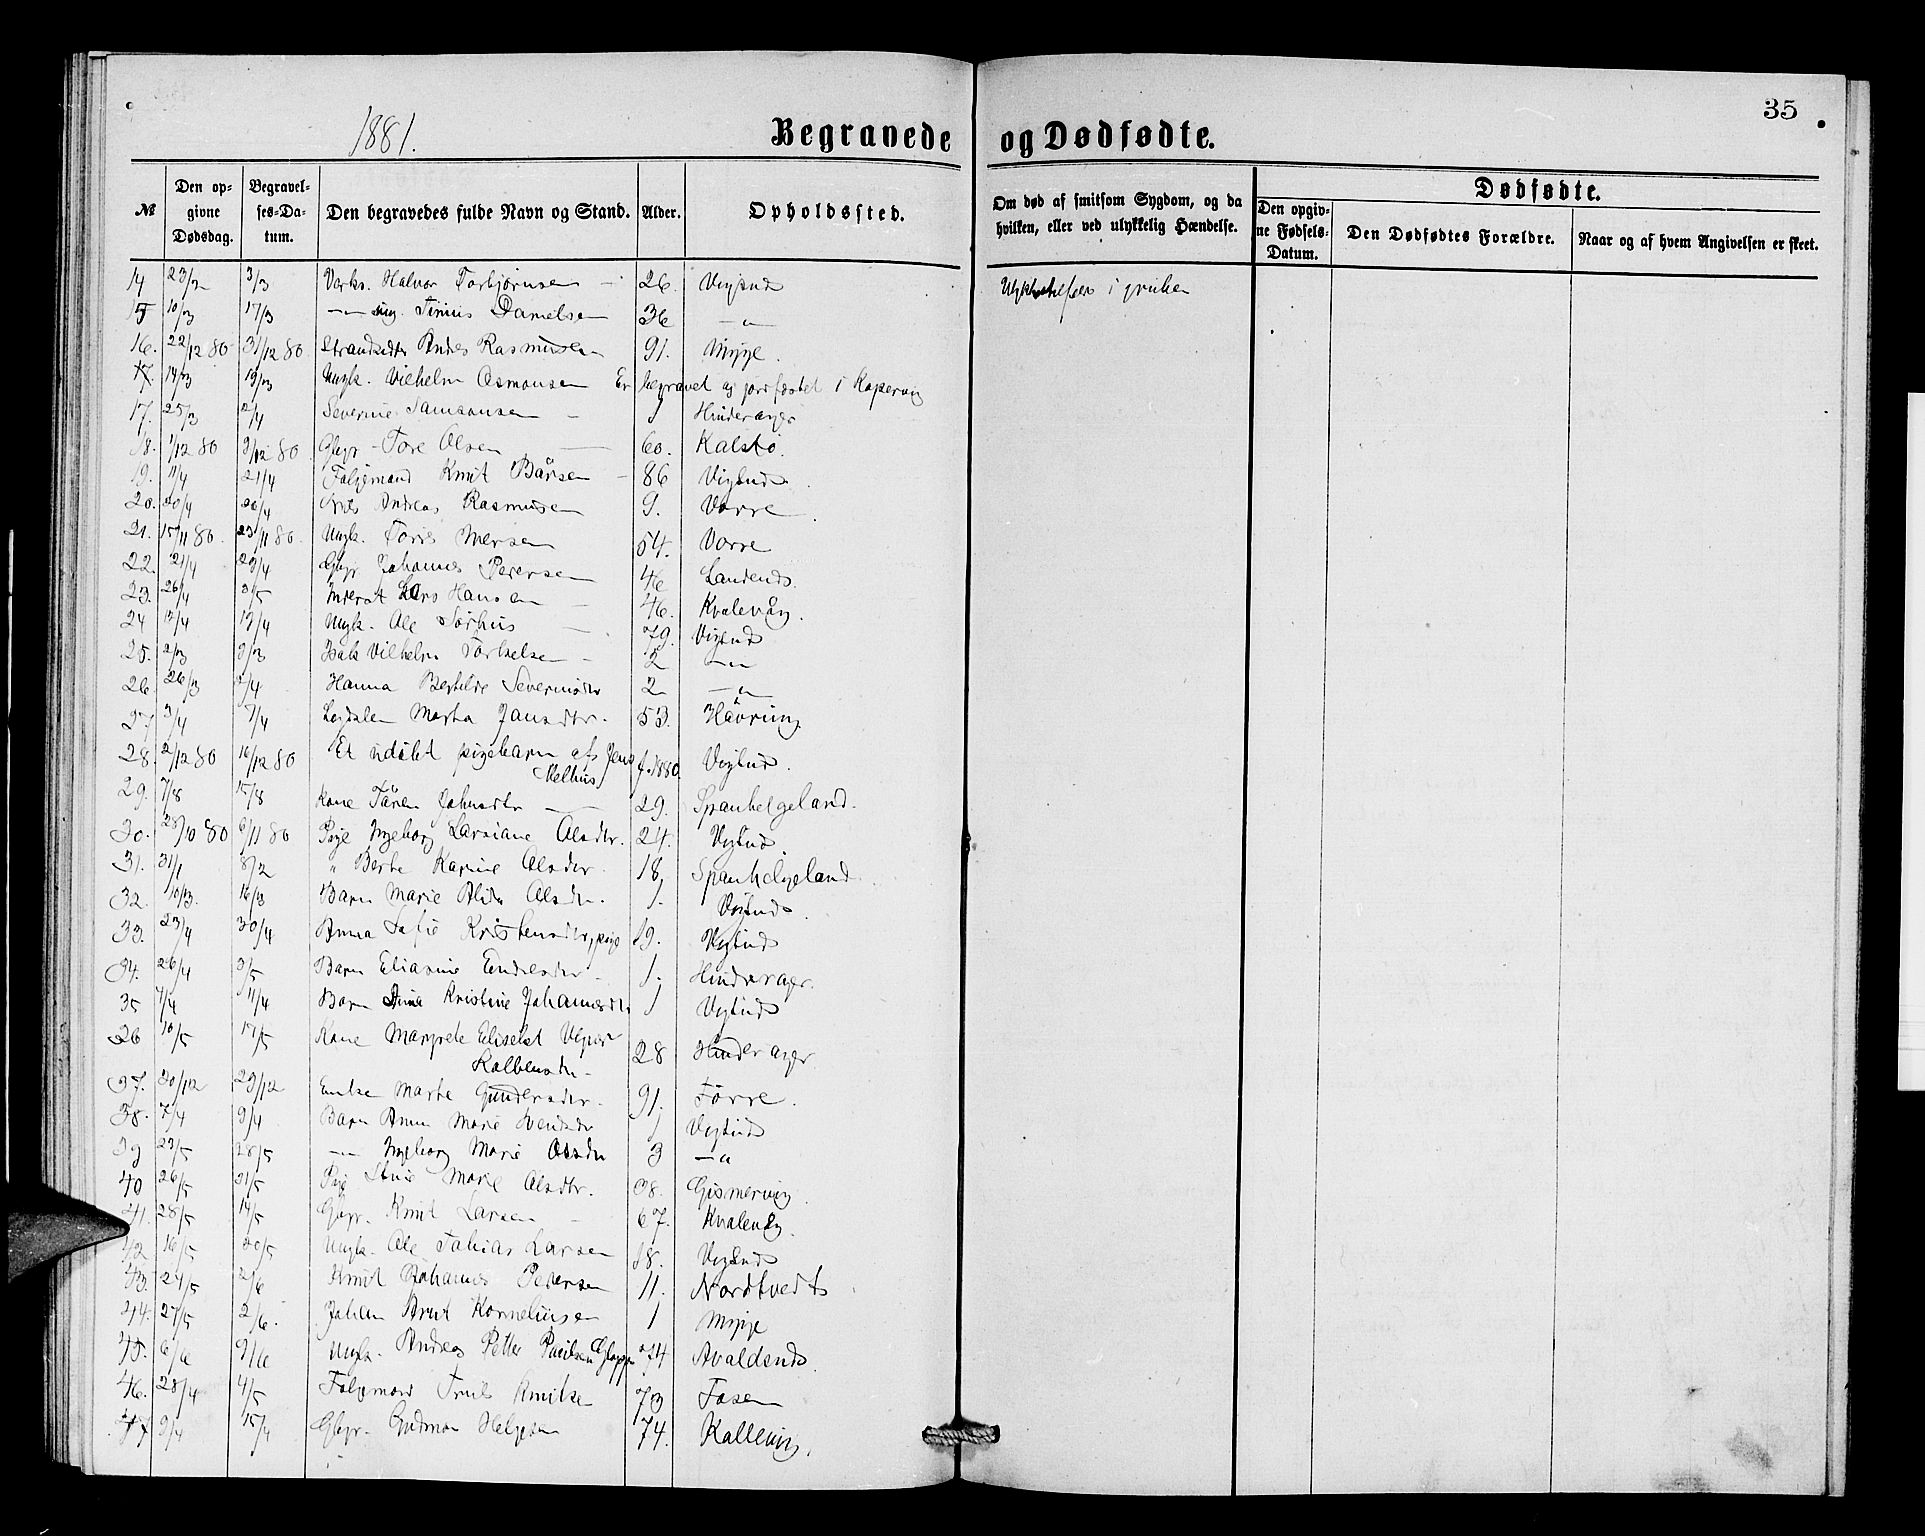 35
1881.
Begravede og Dødfødte.
№
Den opgivne Dødsdag.
Begravelses-Datum.
Den begravedes fulde Navn og Stand.
Alder.
Opholdssted.
Om død af smitsom Sygdom, og da hvilken, eller ved ulykkelig Hændelse.
Dødfødte.
Den opgivne Fødsels-Datum.
Den Dødfødtes Forældre.
Naar og af hvem Angivelsen er skeet.
14 23/2 3/3 Halvor Torbjørnsen — 26. Vigsnæs i gruben
15 10/3 17/3 —"— Danielsen 36 —"—
16. 22/12 80 31/12 80 Rasmussen 91. Myge.
17. 14/3 19/3 Ungk. Vilhelm Asmonsen Er begravet og jordfæstet i Kopervig
17. 25/3 2/4 Severine Samsonsen — 1 Hinderager
18. 1/12 80 9/12 80 Gbgr - Tore Olsen — 60. Kalstø.
19. 11/4 21/4 Følgemand Knut Bårsen — 86 Vigsnæs
20. 20/4 Andreas Rasmusen 9. Vorre
21. 15/11 80. 23/11 80. Ungk. Iversen 54. Vorre
22. 21/4 29/4 Gbgr Johannes Petersen 46
23. 26/4 3/5 Inderst Lars Hansen — 46. Kvalevåg.
24 13/4 19/4 Ungk. Ole Sørhus — 79. Vigsnæs
25. 2/3 9/3 Vilhelm Torkelsen — 2 —"—
26. 26/3 2/4 Hanna Bertilde 2 —"—
27 3/4 7/4 Marta Jansdtr. 53. Håvring
28. 2/12 80 16/12 80 Et udøbt pigebarn af Jens
Melhus f. 1880. Vigsnæs.
29. 7/8 15/8 Kone Johnsdtr — 29. Spanhelgeland.
30. 28/10 80 6/11 80 Pige Ingeborg Larsiane Olsdtr. 24. Vigsnæs.
31. 31/1 8/2 " Berte Karine Olsdtr. 18. Spanhelgeland
32. 10/3. 16/3 Barn Marie Olsdtr. 1. Vigsnæs.
33. 23/4 30/4 Anna Sofie Kristensdtr, pige 19. Vigsnæs
34. 26/4 3/5 Barn Eliasine Endresdtr — 1. Hinderager.
35 7/4 11/4 Barn Kristine Johannesdtr 1 Vigsnæs
36 10/5 17/5 Kone Margrete Elisebet
28 Hinderager
37. 20/12 29/12 Enke Marte Gundersdtr. 91. Førre.
38. 7/4 9/4 Barn Anna Marie 1 Vigsnæs
39 23/5 28/5 —"— Ingeborg Marie Olsdtr 3 —"
40 26/5 31/5 Pige Marie Olsdtr. 38. Gismervig.
41. 28/5 14/5 Gbgr. Knut Larsen — 67. Kvalevåg.
42 16/5 20/5 Ungk. Ole Tobias Larsen 18. Vigsnæs
43. 24/5 2/6 Knut Johannes Pedersen 11. Nordtvedt
44. 27/5 2/6. Johan Kornelinsen 1 Myge
45. 6/6 9/6 Ungk. Andreas Petter 74 Avaldsnæs.
46. 28/4 4/5 Følgemand Truls Knutsen 73 Fosen
47 9/4 15/4 Gbgr. Gudmon Helgesen 74. Kallevig.